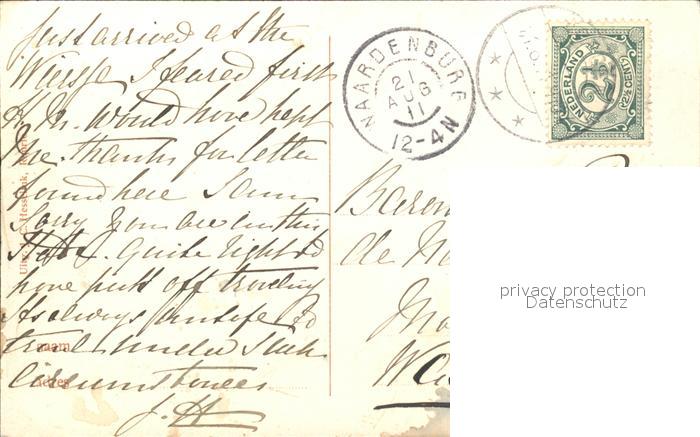 Just arrived at the
Wiersse I feared first
would have kept
me. thanks for letter
found here I am
sorry you are in this
state. quite right to
have put off traveling
its always unsafe to
travel under such
circumstances
J. H
NAARDENBURG
21
AUG
11
12-4N
NEDERLAND
2½
2½ CENT
Baron
de
W
naam
adres
privacy protection
Datenschutz